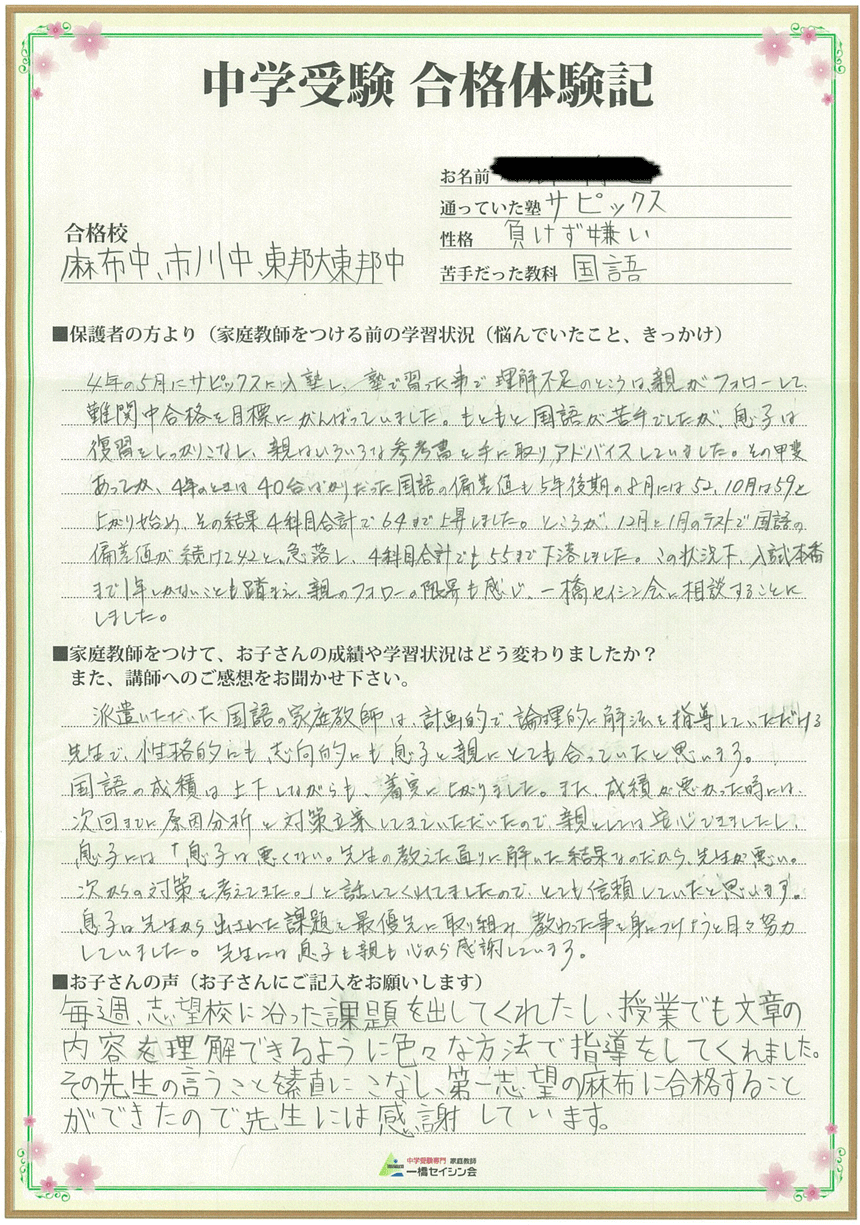 中学受験 合格体験記
お名前
通っていた塾 サピックス
性格 負けず嫌い
苦手だった教科 国語
合格校
麻布中、市川中、東邦大東邦中
■保護者の方より（家庭教師をつける前の学習状況（悩んでいたこと、きっかけ）
4年の5月にサピックスに入塾し、塾で習った事で理解不足のところは、親がフォローして
難関中合格を目標にがんばっていました。もともと国語が苦手でしたが、息子は
復習をしっかりこなし、親はいろいろな参考書を手に取りアドバイスしていました。その甲斐
あってか、4年のときは40台ばかりだった国語の偏差値も5年後期の8月には52、10月は59と
上がり始め、その結果4科目合計で64まで上昇しました。ところが、12月と1月のテストで国語の
偏差値が続けて42と、急落し、4科目合計でも55まで下落しました。この状況下、入試本番
まで1年しかないことも踏まえ、親のフォローの限界も感じ、一橋セイシン会に相談することに
しました。
■家庭教師をつけて、お子さんの成績や学習状況はどう変わりましたか？
また、講師へのご感想をお聞かせ下さい。
派遣いただいた国語の家庭教師は、計画的で、論理的に解法を指導していただける
先生で、性格的にも志向的にも息子と親にとても合っていたと思います。
国語の成績は上下しながらも、着実に上がりました。また、成績が悪かった時には、
次回までに原因分析と対策立案してきていただいたので、親としては安心できましたし、
息子には「息子は悪くない。先生の教えた通りに解いた結果なのだから、先生が悪い。
次からの対策を考えてきた。」と話してくれてましたので、とても信頼していたと思います。
息子は先生から出された課題を最優先に取り組み、教わった事を身につけようと日々努力
していました。先生には息子も親も心から感謝しています。
■お子さんの声（お子さんにご記入をお願いします）
毎週、志望校に沿った課題を出してくれたし、授業でも文章の
内容を理解できるように色々な方法で指導をしてくれました。
その先生の言うことを素直にこなし、第一志望の麻布に合格すること
ができたので、先生には感謝しています。
中学受験専門 家庭教師
一橋セイシン会